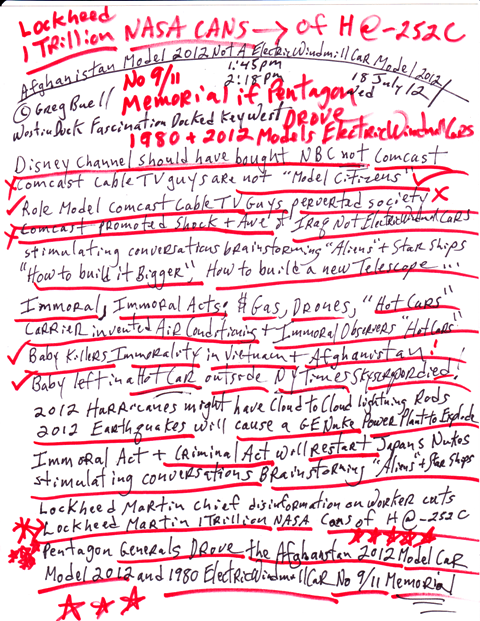 Lockheed
1 Trillion NASA CANS → of H @ -252C
Afghanistan Model 2012 Not A ElectricWindmillCar Model 2012
No 9/11 1:45pm 18 July 12
2:18pm Wed
© Greg Buell Memorial if Pentagon
Westin Dock Fascination Docked Key West DROVE
1980 + 2012 Models ElectricWindmillCars
Disney Channel should have bought NBC not Comcast
Comcast Cable TV guys are not "Model Citizens"
Role Model Comcast Cable TV Guys perverted society
Comcast promoted Shock + Awe of Iraq Not ElectricWindmillCars
stimulating conversations brainstorming "Aliens" + Star Ships
"How to build it Bigger", How to build a new Telescope...
Immoral, Immoral Acts; #Gas, Drones, "Hot Cars"
CARRIER invented Air Conditioning + Immoral Observers "Hot Cars"
Baby Killers Immorality in Vietnam + Afghanistan!
Baby left in a Hot Car outside NY Times Skyscraper died!
2012 Hurricanes might have Cloud to Cloud lightning Rods
2012 Earthquakes will cause a GE Nuke Power Plant to Explode
Immoral Act + Criminal Act will restart Japans Nukes
stimulating conversations Brainstorming "Aliens" + Star Ships
Lockheed Martin Chief disinformation on worker cuts
Lockheed Martin 1 Trillion NASA Cans of H @ -252C
Pentagon Generals DROVE the Afghanistan 2012 Model Car
Model 2012 and 1980 ElectricWindmillCar No 9/11 Memorial